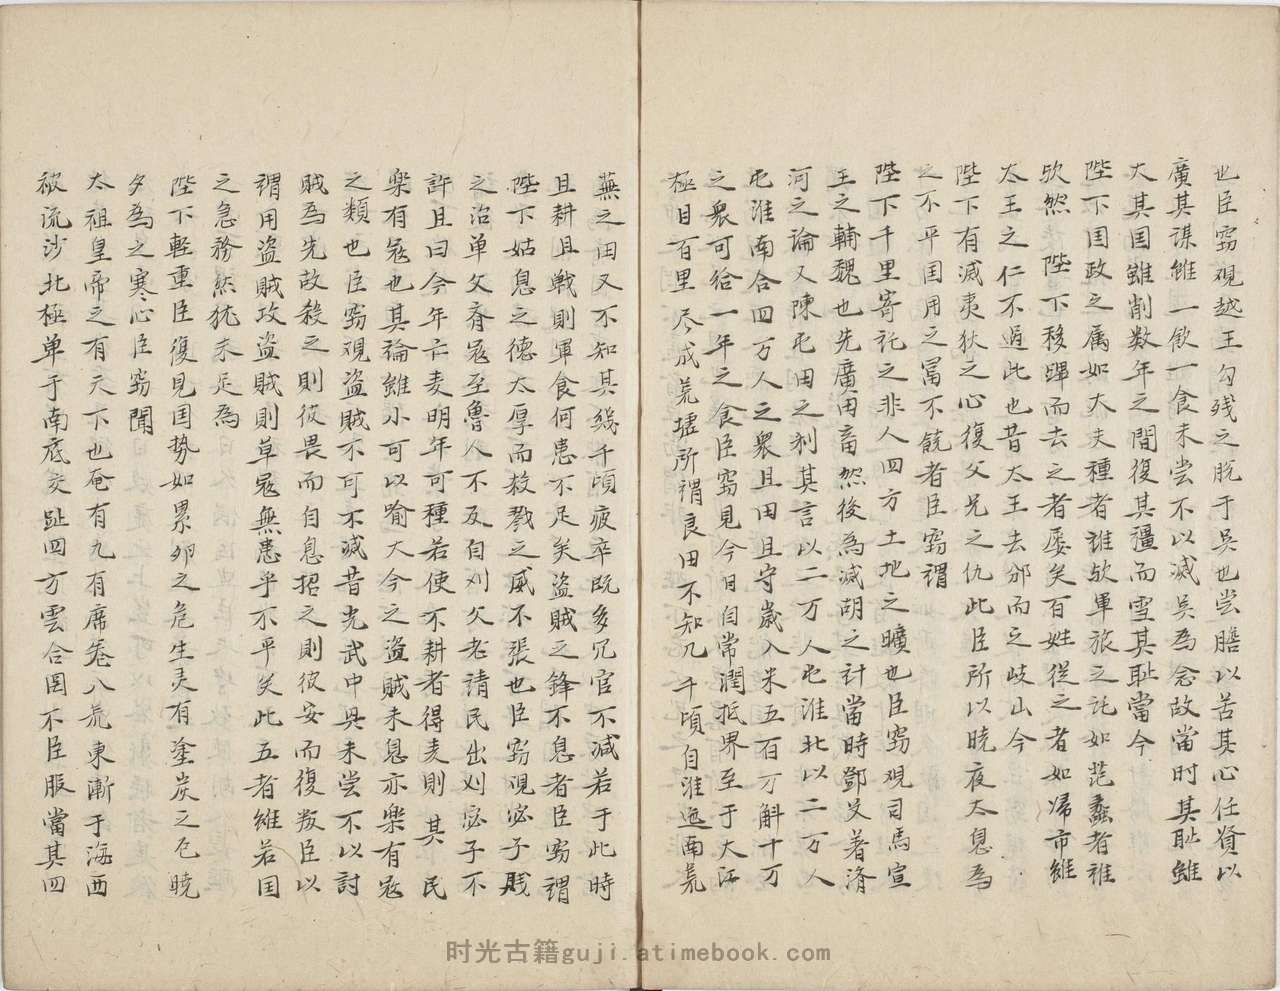 也臣窃观越王勾残之脱于吴也尝膽以苦其心任賢以
廣其谋雖一飲一食未尝不以滅吴為念故當时其耻雖
大其国雖削数年之間復其疆而雪其耻當今
陛下国政之属如大夫種者谁欤軍旅之託如范蠡者谁
欤然陛下移蹕而去之者屡矣百姓従之者如帰市雖
太王之仁不過此也昔太王去邠而之岐山今
陛下有滅夷狄之心復父兄之仇此臣所以晓夜太息為
之不平国用之冨不饒者臣窃谓
陛下千里寄託之非人四方土地之曠也臣窃观司馬宣
王之輔魏也先廣田畜然後為滅胡之计當時鄧艾著済
河之論又陳屯田之利其言以二万人屯淮北以二万人
屯淮南合四万人之衆且田且守嵗入米五百万斛十万
之衆可给一年之食臣窃見今日自常潤抵界至于大江
極目百里尽成荒墟所谓良田不知几千頃自淮迤南荒
蕪之田又不知其幾千頃疲卒既多冗官不減若于此時
且耕且戦則軍食何患不足矣盗賊之鋒不息者臣窃謂
陛下姑息之德太厚而殺戮之威不張也臣窃观宓子賎
之治单父斉寇至魯人不及自刈父老請民出刈宓子不
許且曰今年亡麦明年可種若使不耕者得麦則其民
楽有寇也其論雖小可以喻大今之盗賊未息亦楽有寇
之類也臣窃观盗賊不可不滅昔光武中興未尝不以討
賊為先故殺之則彼畏而自息招之則彼安而復叛臣以
謂用盗賊攻盗賊則草寇無患乎不平矣此五者雖若国
之急務然犹未足為
陛下軽重臣復見国势如累卵之危生灵有塗炭之厄晓
夕為之寒心臣窃聞
太祖皇帝之有天下也奄有九有席卷八荒東漸于海西
被流沙北極单于南底交趾四方雲合罔不臣服當其四
時光古籍guji.atimebook.com